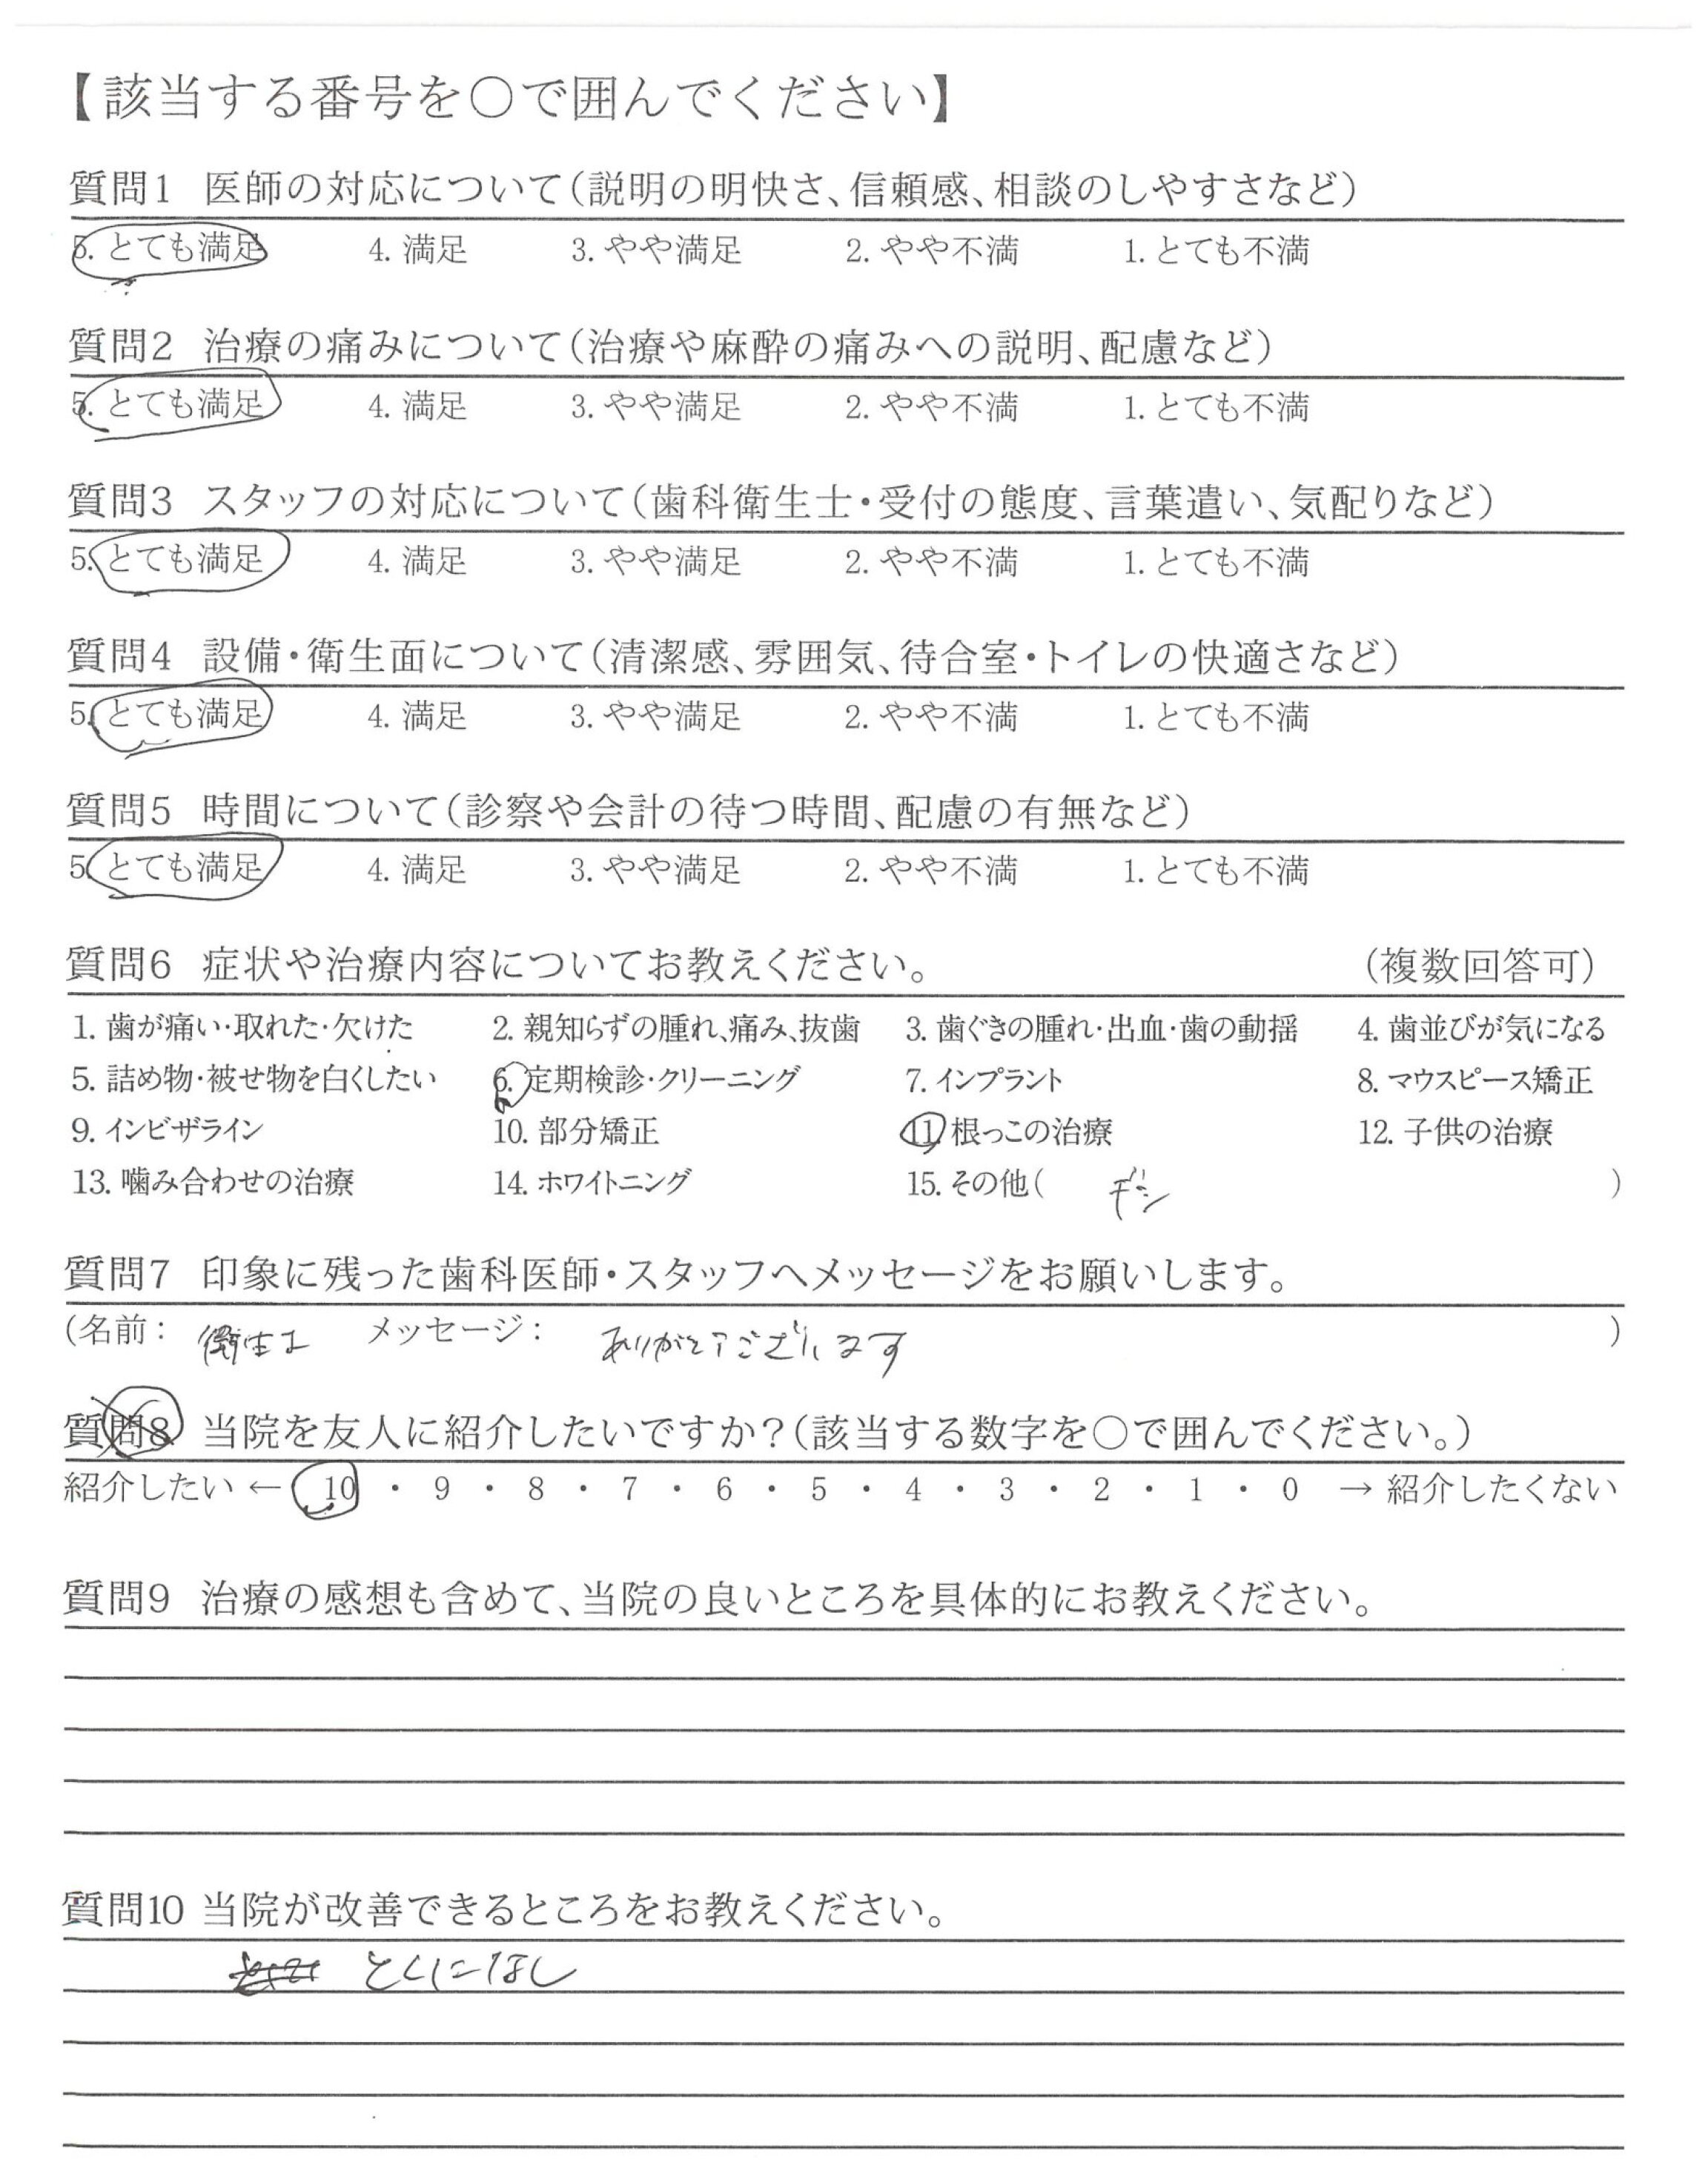 【該当する番号を○で囲んでください】
質問1 医師の対応について(説明の明快さ、信頼感、相談のしやすさなど)
5. とても満足 4. 満足 3. やや満足 2. やや不満 1. とても不満
質問2 治療の痛みについて(治療や麻酔の痛みへの説明、配慮など)
5. とても満足 4. 満足 3. やや満足 2. やや不満 1. とても不満
質問3 スタッフの対応について(歯科衛生士・受付の態度、言葉遣い、気配りなど)
5. とても満足 4. 満足 3. やや満足 2. やや不満 1. とても不満
質問4 設備・衛生面について(清潔感、雰囲気、待合室・トイレの快適さなど)
5. とても満足 4. 満足 3. やや満足 2. やや不満 1. とても不満
質問5 時間について(診察や会計の待つ時間、配慮の有無など)
5. とても満足 4. 満足 3. やや満足 2. やや不満 1. とても不満
質問6 症状や治療内容についてお教えください。 (複数回答可)
1. 歯が痛い・取れた・欠けた 2. 親知らずの腫れ、痛み、抜歯 3. 歯ぐきの腫れ・出血・歯の動揺 4. 歯並びが気になる
5. 詰め物・被せ物を白くしたい 6. 定期検診・クリーニング 7. インプラント 8. マウスピース矯正
9. インビザライン 10. 部分矯正 11. 根っこの治療 12. 子供の治療
13. 噛み合わせの治療 14. ホワイトニング 15. その他( ギシ )
質問7 印象に残った歯科医師・スタッフへメッセージをお願いします。
(名前: 衛生士 メッセージ: ありがとうございます )
質問8 当院を友人に紹介したいですか?(該当する数字を○で囲んでください。)
紹介したい ← 10 ・ 9 ・ 8 ・ 7 ・ 6 ・ 5 ・ 4 ・ 3 ・ 2 ・ 1 ・ 0 → 紹介したくない
質問9 治療の感想も含めて、当院の良いところを具体的にお教えください。
質問10 当院が改善できるところをお教えください。
とくになし